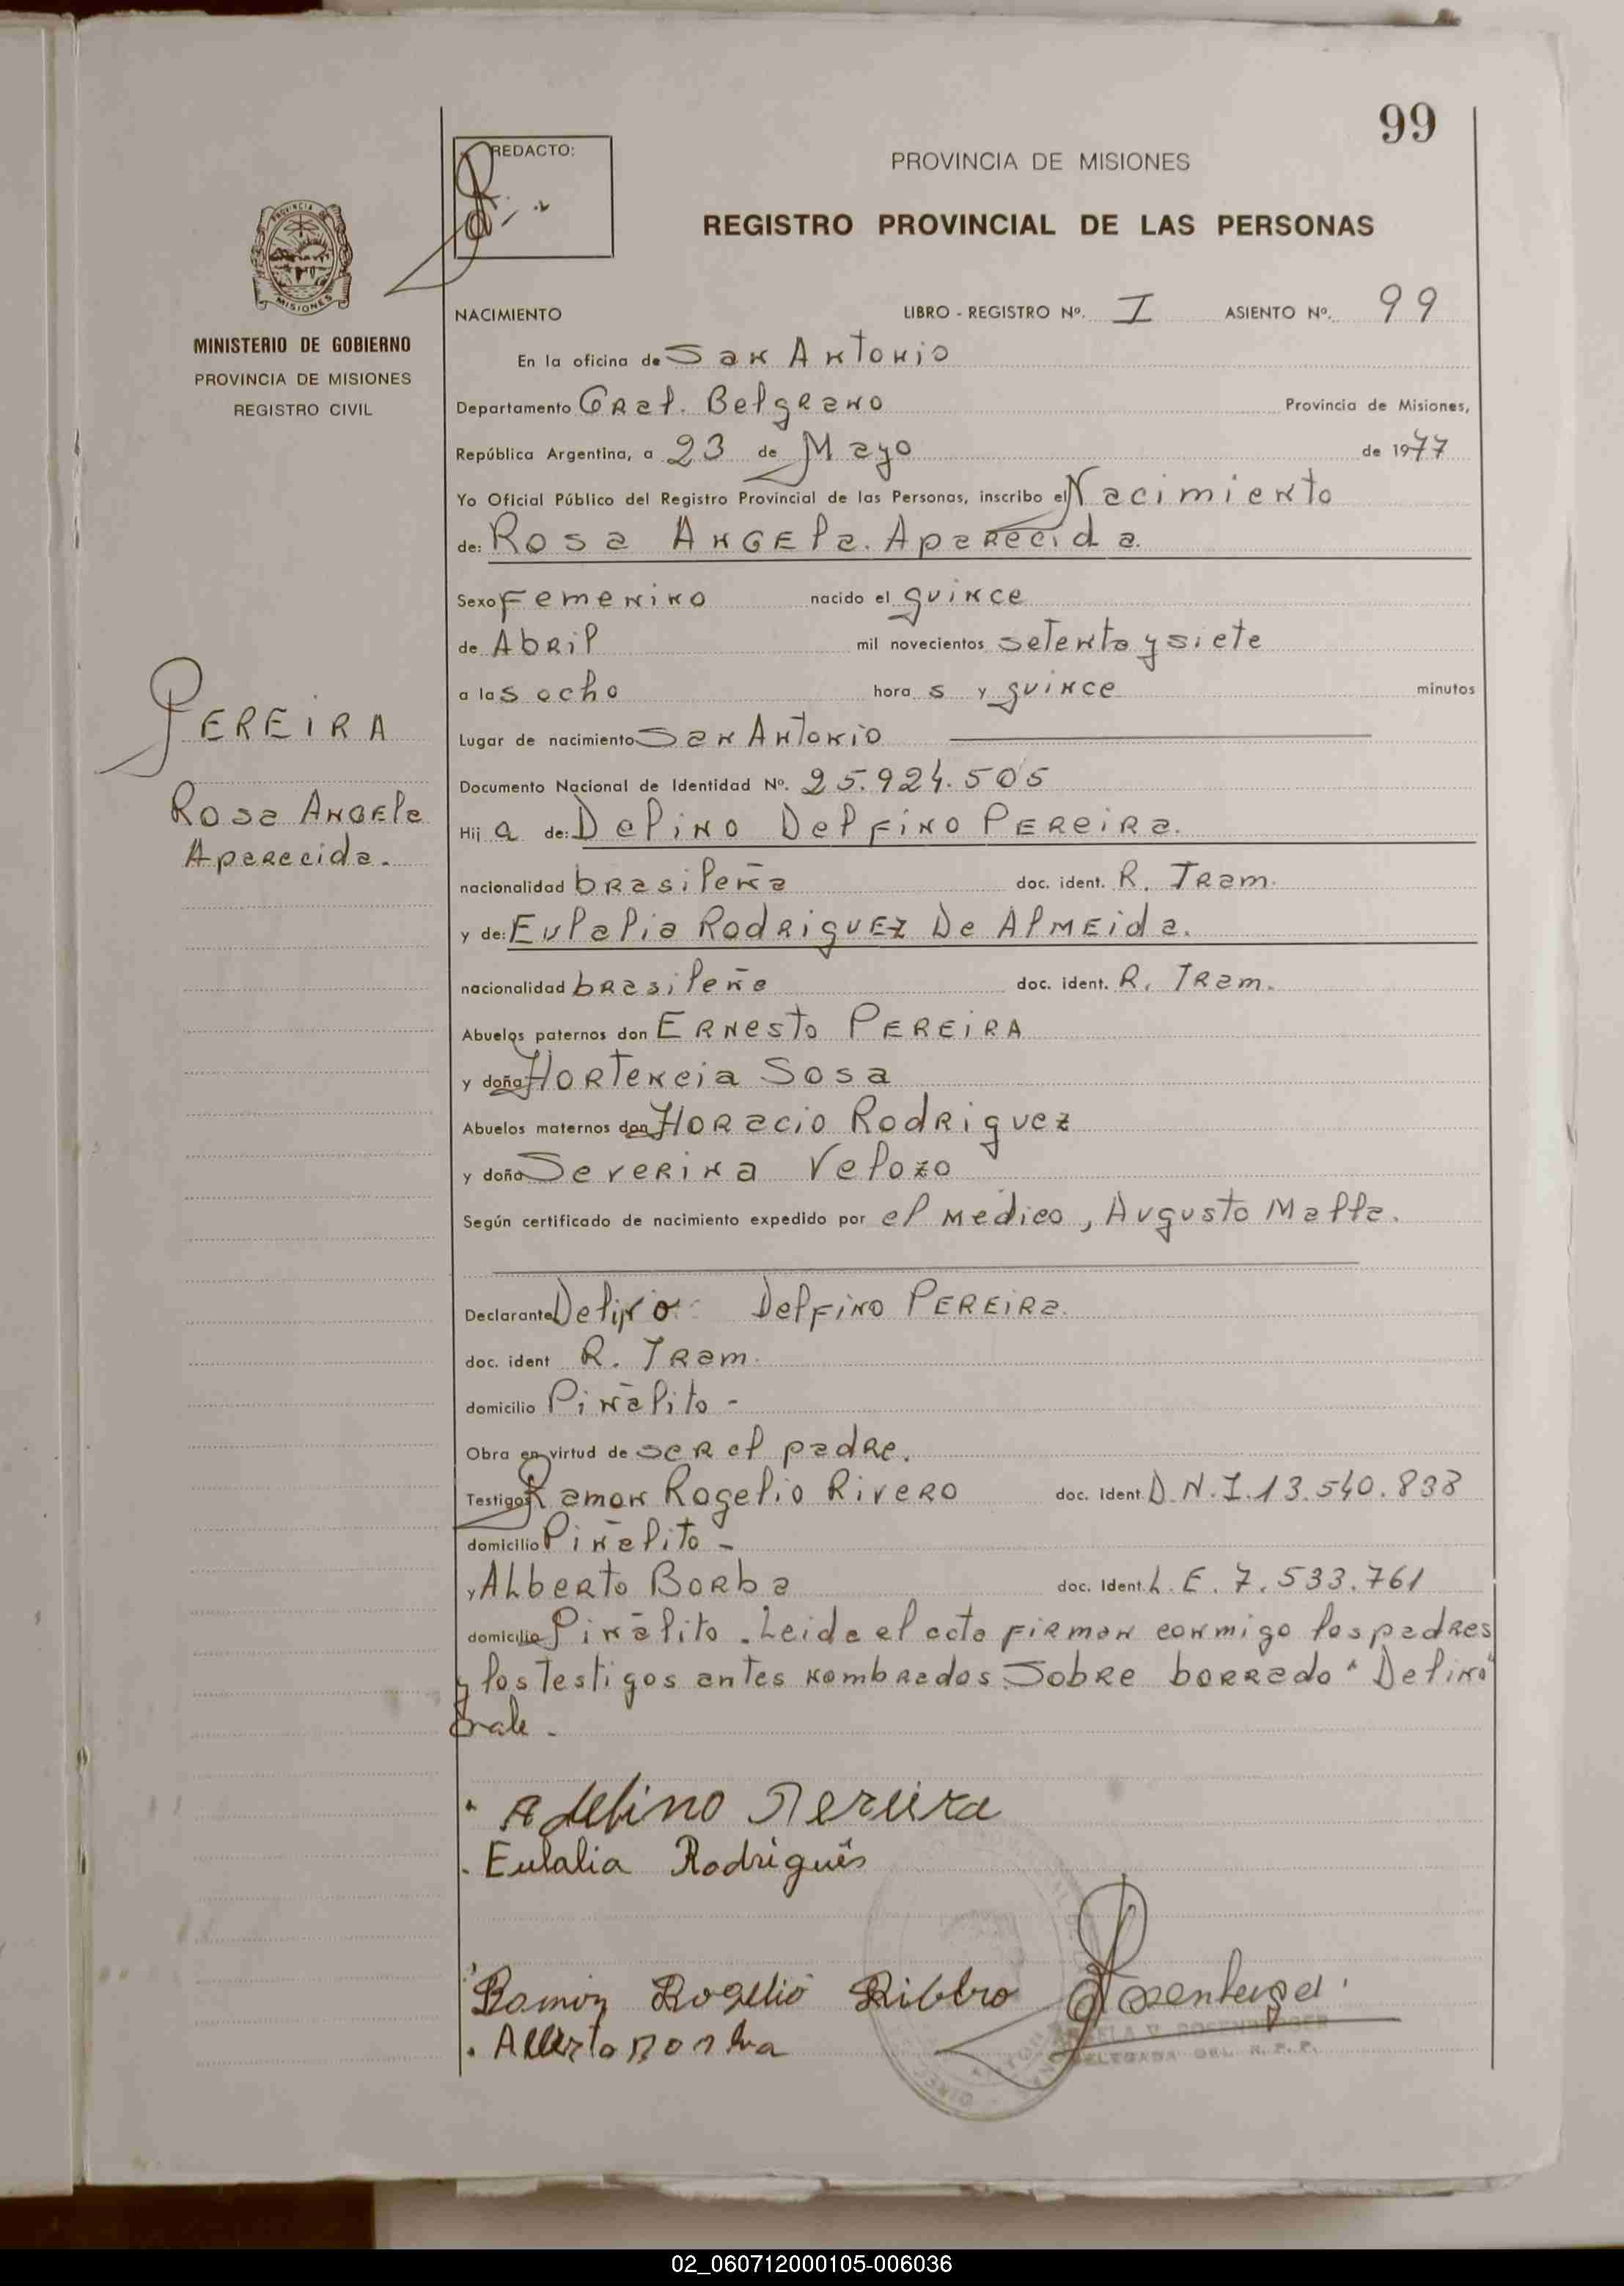 99
REDACTO:
PROVINCIA DE MISIONES
REGISTRO PROVINCIAL DE LAS PERSONAS
PROVINCIA DE
MISIONES
MINISTERIO DE GOBIERNO
PROVINCIA DE MISIONES
REGISTRO CIVIL
NACIMIENTO LIBRO - REGISTRO Nº. I ASIENTO Nº. 99
En la oficina de San Antonio
Departamento Gral. Belgrano Provincia de Misiones,
República Argentina, a 23 de Mayo de 1977
Yo Oficial Público del Registro Provincial de las Personas, inscribo el Nacimiento
de: Rosa Angela. Aparecida.
Sexo Femenino nacido el quince
de Abril mil novecientos setenta y siete
a las ocho hora s y quince minutos
PEREIRA
Rosa Angela
Aparecida.
Lugar de nacimiento San Antonio
Documento Nacional de Identidad Nº. 25.924.505
Hij a de: Delino Delfino Pereira.
nacionalidad brasileña doc. ident. R. Tram.
y de: Eulalia Rodriguez De Almeida.
nacionalidad brasileña doc. ident. R. Tram.
Abuelos paternos don Ernesto PEREIRA
y doña Hortencia Sosa
Abuelos maternos don Horacio Rodriguez
y doña Severina Velozo
Según certificado de nacimiento expedido por el medico, Augusto Malla.
Declarante Delino Delfino Pereira.
doc. ident R. Tram.
domicilio Piñalito -
Obra en virtud de ser el padre.
Testigos Ramon Rogelio Rivero doc. ident. D.N.I. 13.540.838
domicilio Piñalito -
y Alberto Borba doc. Ident. L.E. 7.533.761
domicilio Piñalito. Leida el acta firman conmigo los padres
y los testigos antes nombrados. Sobre borrado "Delino"
vale.
Adelino Pereira
Eulalia Rodrigues
Ramon Rogelio Ribero
Alberto Borba
DELEGADA DEL R. P. P.
02_060712000105-006036